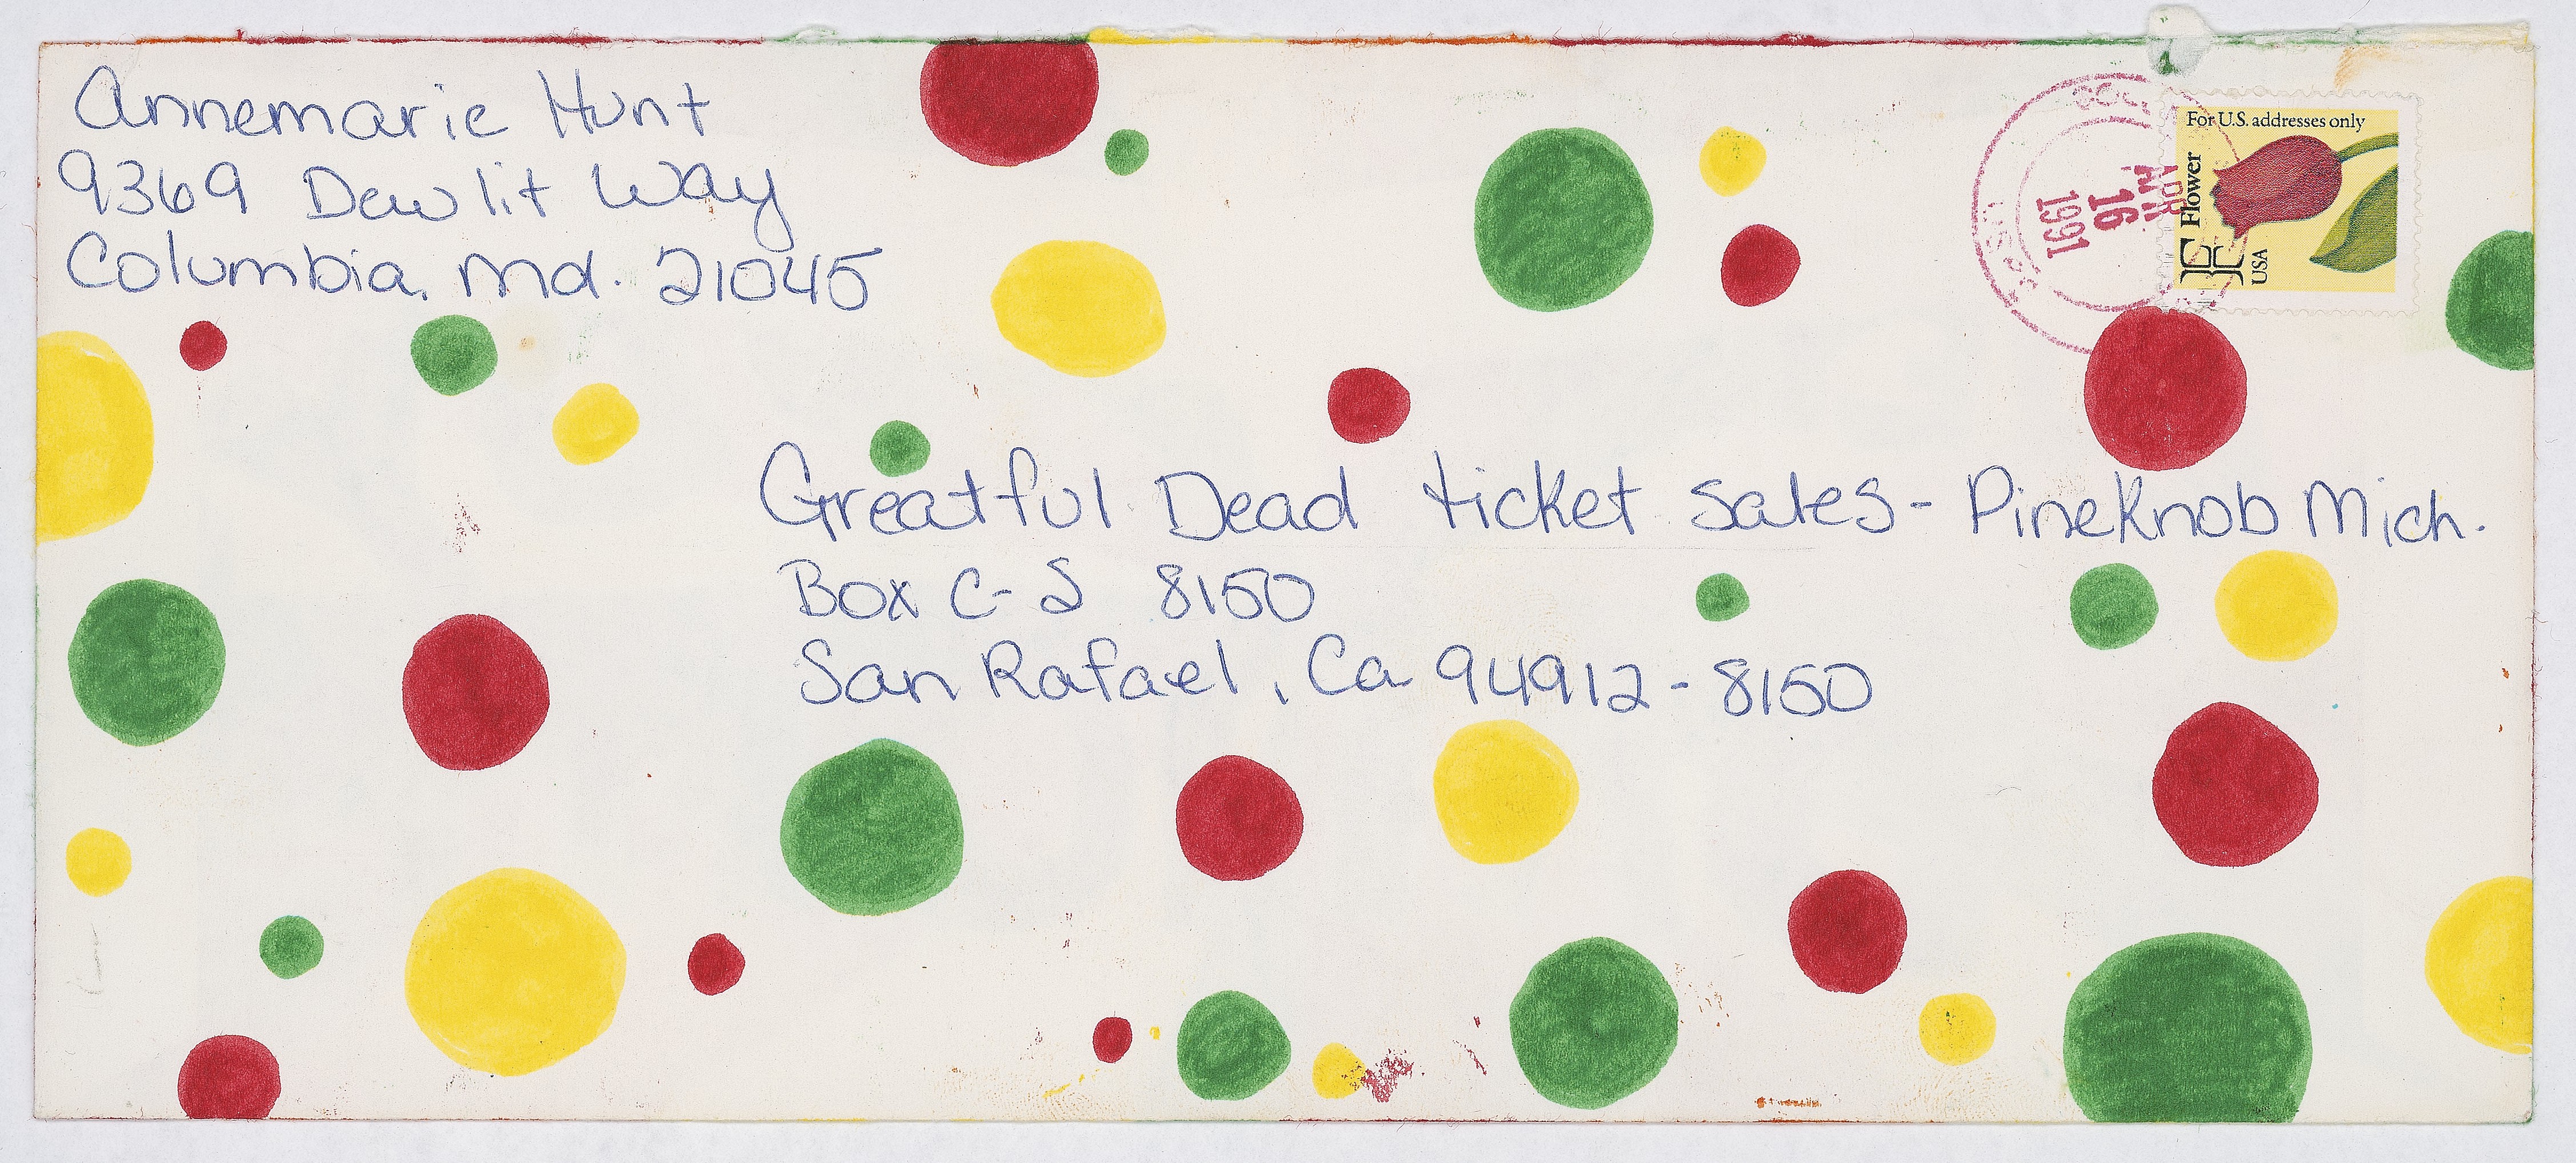 Annemarie Hunt
9369 Dewlit Way
Columbia, Md. 21045
For U.S. addresses only
Flower
USA
APR
16
1991
Greatful Dead ticket sales - PineKnob Mich.
Box C-S 8150
San Rafael, Ca 94912-8150